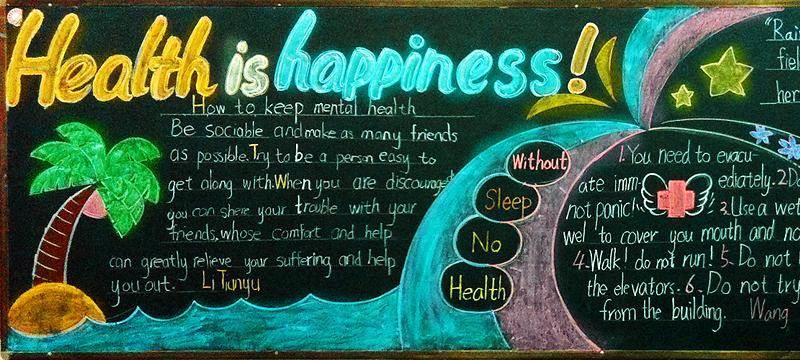 Health is happiness!
How to keep mental health
Be sociable and make as many friends
as possible. Try to be a person easy to
get along with. When you are discouraged
you can share your trouble with your
friends, whose comfort and help
can greatly relieve your suffering and help
you out. Li Tianyu
Without
Sleep
No
Health
"Rai
fiel
her
1. You need to evacu-
ate imm ediately. 2. Do
not panic! 3. Use a wet
wel to cover you mouth and no
4. Walk! do not run! 5. Do not
the elevators. 6. Do not try
from the building. Wang